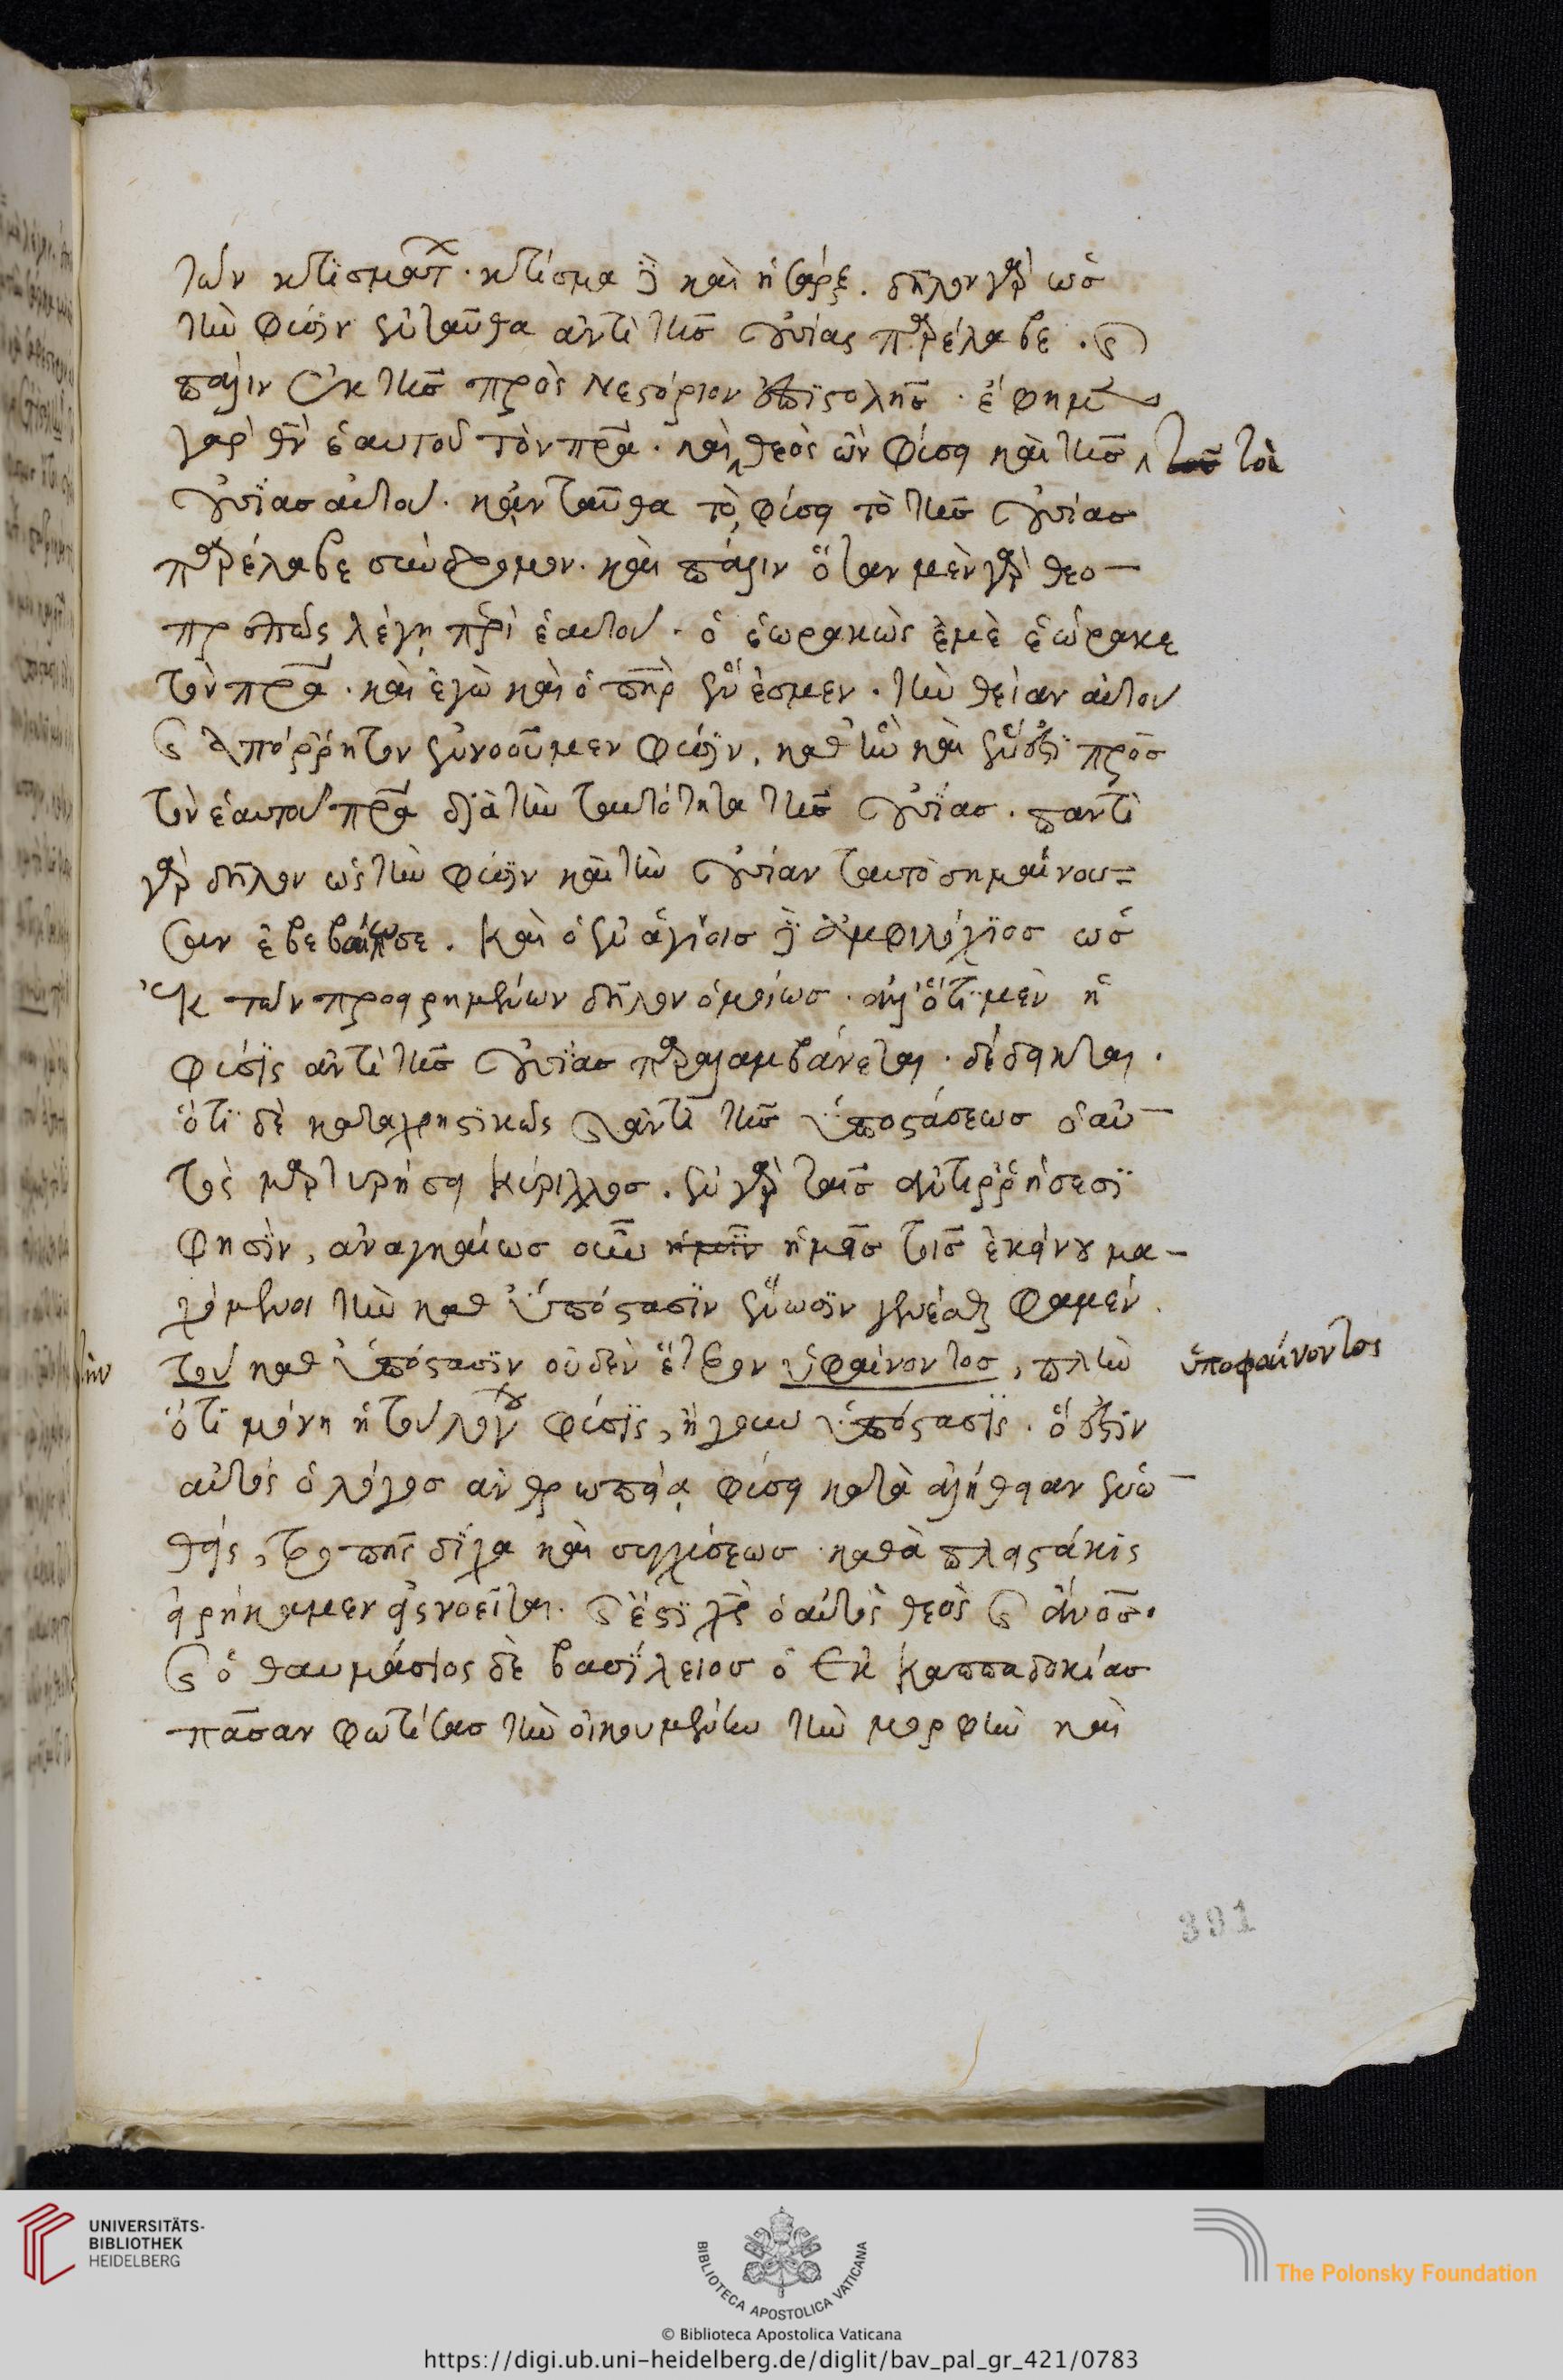 τῶν κτισμάτων· κτίσμα δὲ καὶ ἡ σάρξ. δῆλον γὰρ ὡς
τὴν φύσιν ἐνταῦθα ἀντὶ τῆς οὐσίας παρέλαβε. καὶ
πάλιν ἐκ τῆς πρὸς Νεστόριον ἐπιστολῆς. ἔφη μὲν
γὰρ ἑαυτοῦ τὸν πρα. καὶ θεὸς ὢν φύσει καὶ τῆς τοῦ
οὐσίας αὐτοῦ. κἀνταῦθα τῷ φύσει τὸ τῆς οὐσίας
παρέλαβε σύνδρομον. καὶ πάλιν ὅταν μὲν γὰρ θεο-
πρεπῶς λέγῃ περὶ ἑαυτοῦ. ὁ ἑωρακὼς ἐμὲ ἑώρακε
τὸν πρα. καὶ ἐγὼ καὶ ὁ πηρ ἕν ἐσμεν. τὴν θείαν αὐτοῦ
καὶ ἀπόρρητον ἐννοοῦμεν φύσιν, καθ' ἣν καὶ ἕν ἐστι πρὸς
τὸν ἑαυτοῦ πρα διὰ τὴν ταυτότητα τῆς οὐσίας. παντὶ
γὰρ δῆλον ὡς τὴν φύσιν καὶ τὴν οὐσίαν ταυτὸ σημαίνου=
σαν ἐβεβαίωσε. καὶ ὁ ἐν ἁγίοις δὲ ἀμφιλόχιος ὡς
ἐκ τῶν προειρημένων δῆλον ὁμοίως. ἀλλ' ὅτι μὲν ἡ
φύσις ἀντὶ τῆς οὐσίας παραλαμβάνεται. δέδεικται.
ὅτι δὲ καταχρηστικῶς καὶ ἀντὶ τῆς ὑποστάσεως ὁ αὐ-
τὸς μαρτυρήσει κύριλλος. ἐν γὰρ ταῖς ἀντιρρήσεσι
φησὶν, ἀναγκαίως οὖν ἡμῖν ἡμᾶς τοῖς ἐκείνου μα-
χόμενοι τὴν καθ' ὑπόστασιν ἕνωσιν γενέσθαι φαμέν.
τοῦ καθ' ὑπόστασιν οὐδὲν ἕτερον ὑφαίνοντος, πλὴν ὑποφαίνοντος
ὅτι μόνη ἡ τοῦ λόγου φύσις, ἤγουν ὑπόστασις. ὅ ἐστιν
αὐτὸς ὁ λόγος ἀνθρωπείᾳ φύσει κατὰ ἀλήθειαν ἑνω-
θεὶς, τροπῆς δίχα καὶ συγχύσεως καθὰ πλειστάκις
εἰρήκαμεν εἷς νοεῖται. καὶ ἔστι χς ὁ αὐτὸς θεὸς καὶ ανος.
καὶ ὁ θαυμάσιος δὲ βασίλειος ὁ ἐκ καππαδοκίας
πᾶσαν φωτίσας τὴν οἰκουμένην τὴν μορφὴν καὶ
391
UNIVERSITÄTS-
BIBLIOTHEK
HEIDELBERG
BIBLIOTECA APOSTOLICA VATICANA
The Polonsky Foundation
© Biblioteca Apostolica Vaticana
https://digi.ub.uni-heidelberg.de/diglit/bav_pal_gr_421/0783